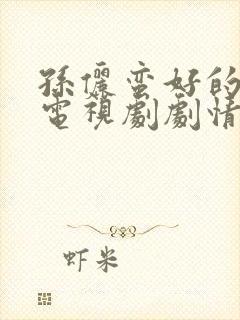 孫儷蛮好的
電視劇劇情
虾米